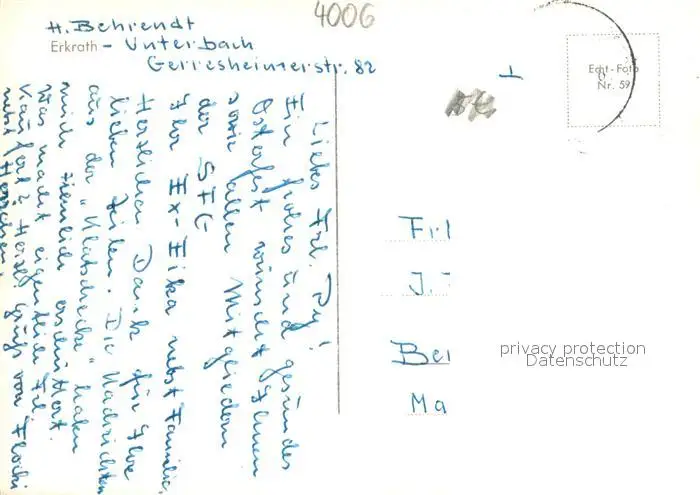 4006
H. Behrendt
Erkrath - Unterbach
Gerresheimerstr. 82
Echt-Foto
Nr. 59
Liebes Frl. Py!
Ein frohes und gesundes
Osterfest wünscht Ihnen
sowie allen Mitgliedern
der SFG
Ihr Ex-Eika nebst Familie.
Herzlichen Dank für Ihre
lieben Zeilen. Die Nachrichten
aus der „Klatschecke" haben
mich ziemlich erschüttert.
Was macht eigentlich Frl.
Herzl. Gruß von
nebst Herrchen.
Frl
J.
Bei
Ma
privacy protection
Datenschutz